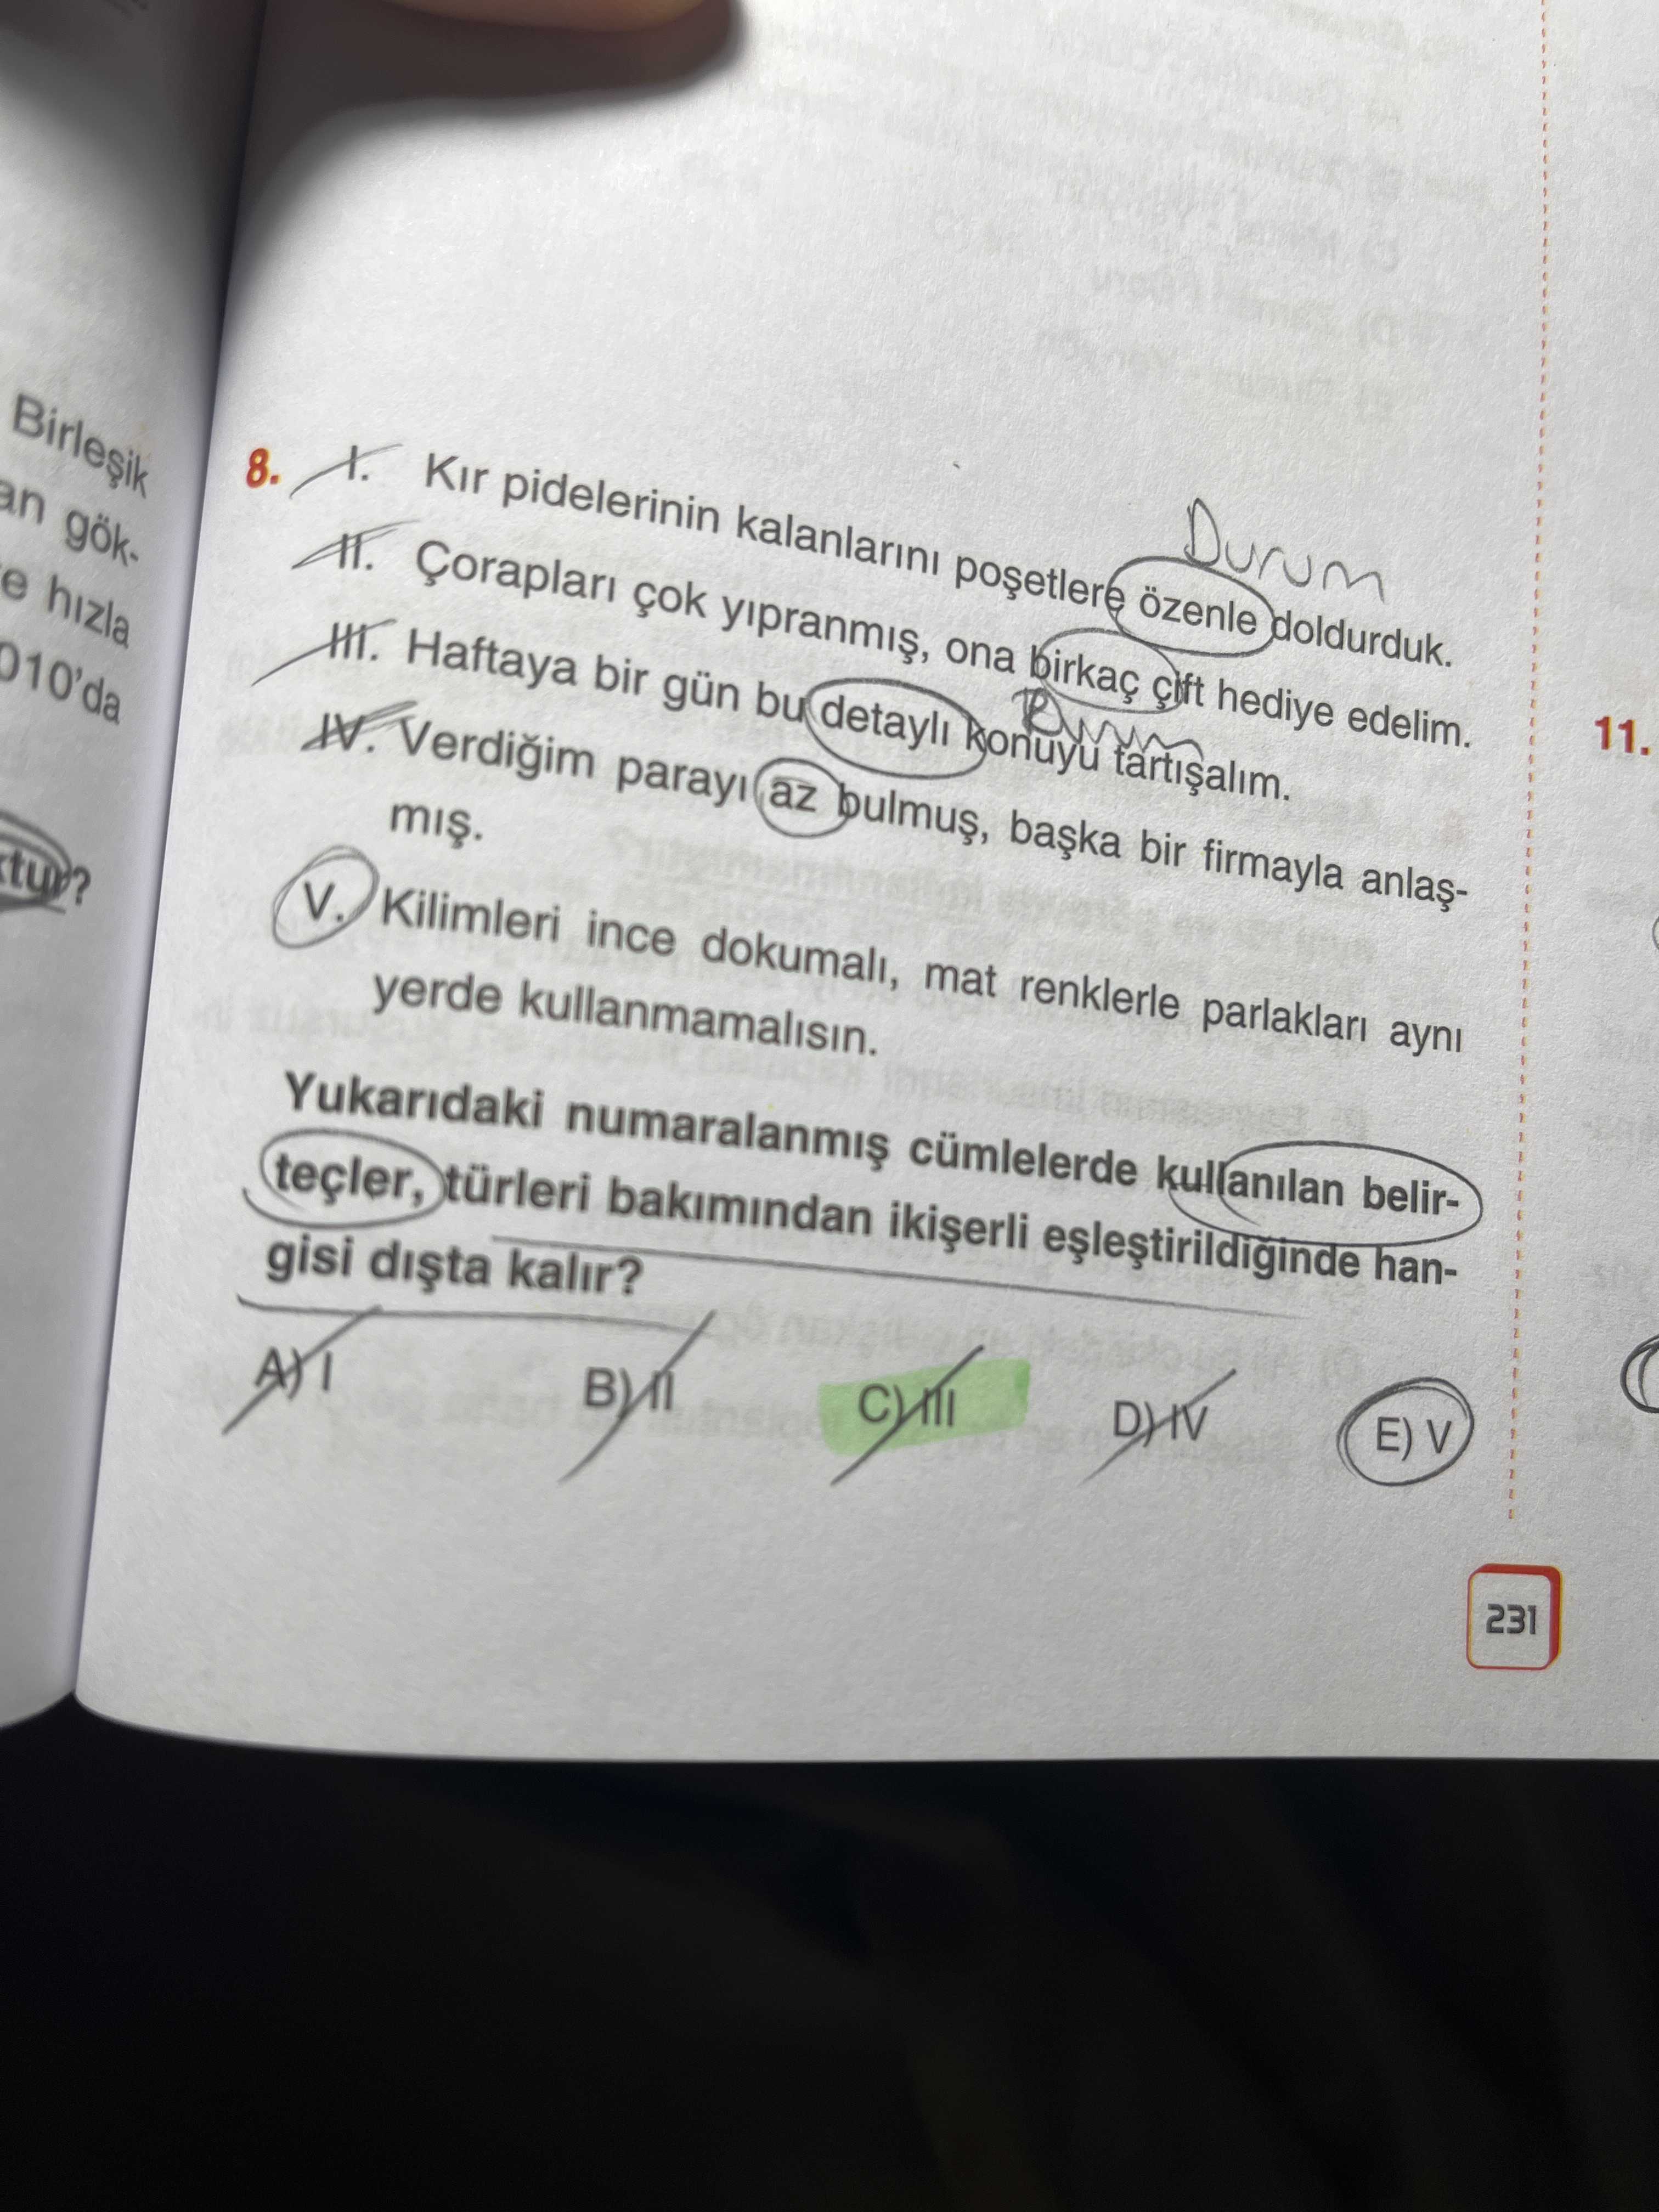 Birleşik
an gök-
e hızla
010'da
ktur?
8. I. Kır pidelerinin kalanlarını poşetlere özenle doldurduk.
Durum
II. Çorapları çok yıpranmış, ona birkaç çift hediye edelim.
III. Haftaya bir gün bu detaylı konuyu tartışalım.
IV. Verdiğim parayı az bulmuş, başka bir firmayla anlaş-
mış.
V. Kilimleri ince dokumalı, mat renklerle parlakları aynı
yerde kullanmamalısın.
Yukarıdaki numaralanmış cümlelerde kullanılan belir-
teçler, türleri bakımından ikişerli eşleştirildiğinde han-
gisi dışta kalır?
A) I B) II C) III D) IV E) V
231
11.